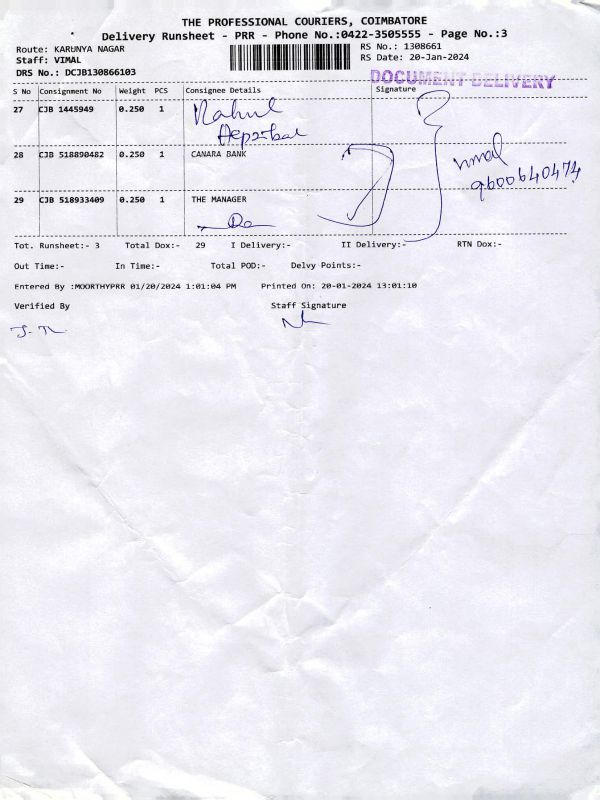 THE PROFESSIONAL COURIERS, COIMBATORE
Delivery Runsheet - PRR - Phone No.:0422-3505555 - Page No.:3
Route: KARUNYA NAGAR
Staff: VIMAL
DRS No.: DCJB130866103
RS No.: 1308661
RS Date: 20-Jan-2024
DOCUMENT DELIVERY
S No Consignment No Weight PCS Consignee Details Signature
27 CJB 1445949 0.250 1 Rahul
28 CJB 518890482 0.250 1 CANARA BANK
vimal
9600640474
29 CJB 518933409 0.250 1 THE MANAGER
Tot. Runsheet:- 3 Total Dox:- 29 I Delivery:- II Delivery:- RTN Dox:-
Out Time:- In Time:- Total POD:- Delvy Points:-
Entered By :MOORTHYPRR 01/20/2024 1:01:04 PM Printed On: 20-01-2024 13:01:10
Verified By Staff Signature